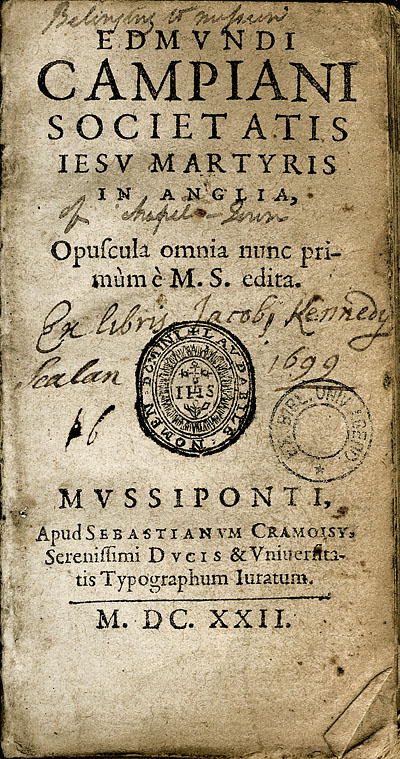 Belonging to mission
EDMVNDI
CAMPIANI
SOCIETATIS
IESV MARTYRIS
IN ANGLIA,
of Chapel-Town
Opuſcula omnia nunc pri-
mùm è M. S. edita.
Ex libris Jacobi Kennedy
Scalan 1699
NOMEN DOMINI LAVDABILE
IHS
MVSSIPONTI,
Apud SEBASTIANVM CRAMOISY,
Sereniſſimi DVCIS & Vniuerſita-
tis Typographum Iuratum.
M. DC. XXII.